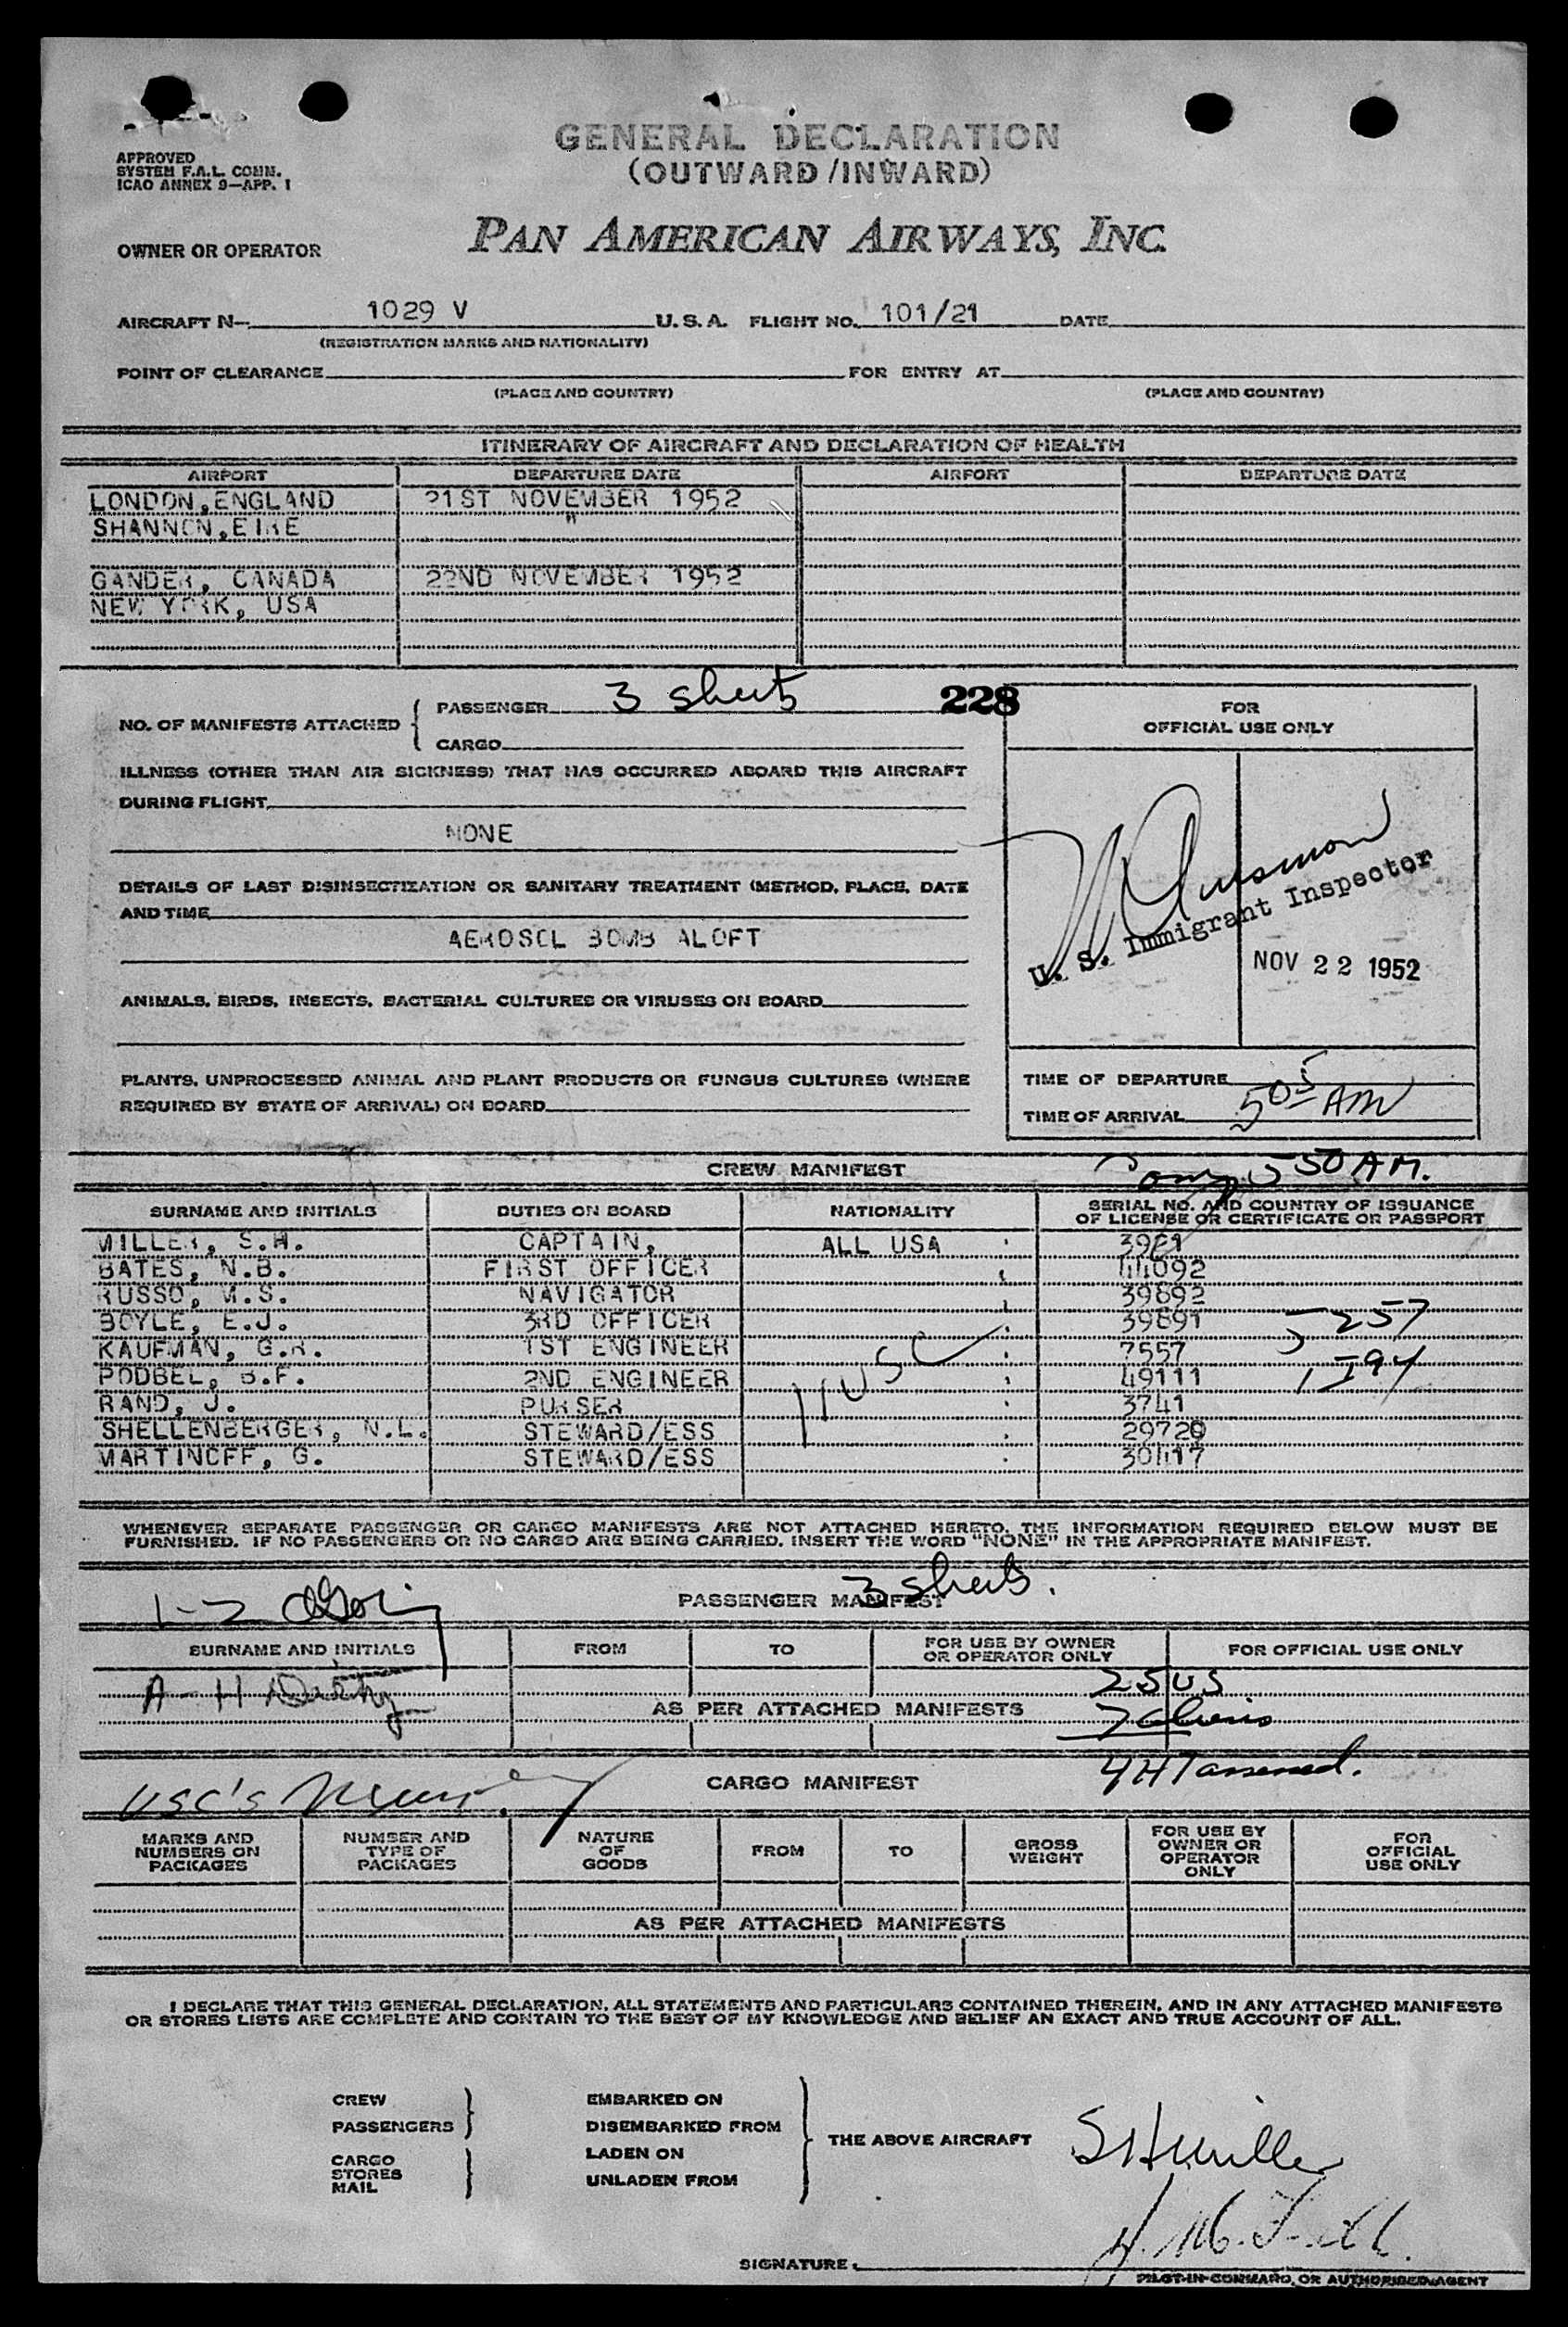 GENERAL DECLARATION
(OUTWARD/INWARD)
APPROVED
SYSTEM F.A.L. COMM.
ICAO ANNEX 9—APP. 1
OWNER OR OPERATOR
PAN AMERICAN AIRWAYS, INC.
AIRCRAFT N— 1029 V U.S.A. FLIGHT NO. 101/21 DATE
(REGISTRATION MARKS AND NATIONALITY)
POINT OF CLEARANCE FOR ENTRY AT
(PLACE AND COUNTRY) (PLACE AND COUNTRY)
ITINERARY OF AIRCRAFT AND DECLARATION OF HEALTH
AIRPORT DEPARTURE DATE AIRPORT DEPARTURE DATE
LONDON, ENGLAND 21ST NOVEMBER 1952
SHANNON, EIRE "
GANDER, CANADA 22ND NOVEMBER 1952
NEW YORK, USA
NO. OF MANIFESTS ATTACHED { PASSENGER 3 sheets
CARGO
228
FOR
OFFICIAL USE ONLY
ILLNESS (OTHER THAN AIR SICKNESS) THAT HAS OCCURRED ABOARD THIS AIRCRAFT
DURING FLIGHT
NONE
DETAILS OF LAST DISINSECTIZATION OR SANITARY TREATMENT (METHOD, PLACE, DATE
AND TIME
AEROSOL BOMB ALOFT
U. S. Immigrant Inspector
NOV 22 1952
ANIMALS, BIRDS, INSECTS, BACTERIAL CULTURES OR VIRUSES ON BOARD
PLANTS, UNPROCESSED ANIMAL AND PLANT PRODUCTS OR FUNGUS CULTURES (WHERE
REQUIRED BY STATE OF ARRIVAL) ON BOARD
TIME OF DEPARTURE
TIME OF ARRIVAL 505 AM
CREW MANIFEST
550 AM.
SURNAME AND INITIALS DUTIES ON BOARD NATIONALITY SERIAL NO. AND COUNTRY OF ISSUANCE
OF LICENSE OR CERTIFICATE OR PASSPORT
MILLER, S.H. CAPTAIN, ALL USA
BATES, N.B. FIRST OFFICER 44092
RUSSO, M.S. NAVIGATOR 39892
BOYLE, E.J. 3RD OFFICER 39891
KAUFMAN, G.R. 1ST ENGINEER 7557
PODBEL, B.F. 2ND ENGINEER 49111
RAND, J. PURSER 3741
SHELLENBERGER, N.L. STEWARD/ESS 29729
MARTINOFF, G. STEWARD/ESS 30417
WHENEVER SEPARATE PASSENGER OR CARGO MANIFESTS ARE NOT ATTACHED HERETO, THE INFORMATION REQUIRED BELOW MUST BE
FURNISHED. IF NO PASSENGERS OR NO CARGO ARE BEING CARRIED, INSERT THE WORD "NONE" IN THE APPROPRIATE MANIFEST.
PASSENGER MANIFEST 3 sheets.
SURNAME AND INITIALS FROM TO FOR USE BY OWNER
OR OPERATOR ONLY FOR OFFICIAL USE ONLY
25 US
A - H
AS PER ATTACHED MANIFESTS 7 aliens
4 HT assessed.
USC's
CARGO MANIFEST
MARKS AND
NUMBERS ON
PACKAGES NUMBER AND
TYPE OF
PACKAGES NATURE
OF
GOODS FROM TO GROSS
WEIGHT FOR USE BY
OWNER OR
OPERATOR
ONLY FOR
OFFICIAL
USE ONLY
AS PER ATTACHED MANIFESTS
I DECLARE THAT THIS GENERAL DECLARATION, ALL STATEMENTS AND PARTICULARS CONTAINED THEREIN, AND IN ANY ATTACHED MANIFESTS
OR STORES LISTS ARE COMPLETE AND CONTAIN TO THE BEST OF MY KNOWLEDGE AND BELIEF AN EXACT AND TRUE ACCOUNT OF ALL.
CREW
PASSENGERS
CARGO
STORES
MAIL
EMBARKED ON
DISEMBARKED FROM
LADEN ON
UNLADEN FROM
THE ABOVE AIRCRAFT
SHMiller
SIGNATURE:
PILOT-IN-COMMAND, OR AUTHORISED AGENT